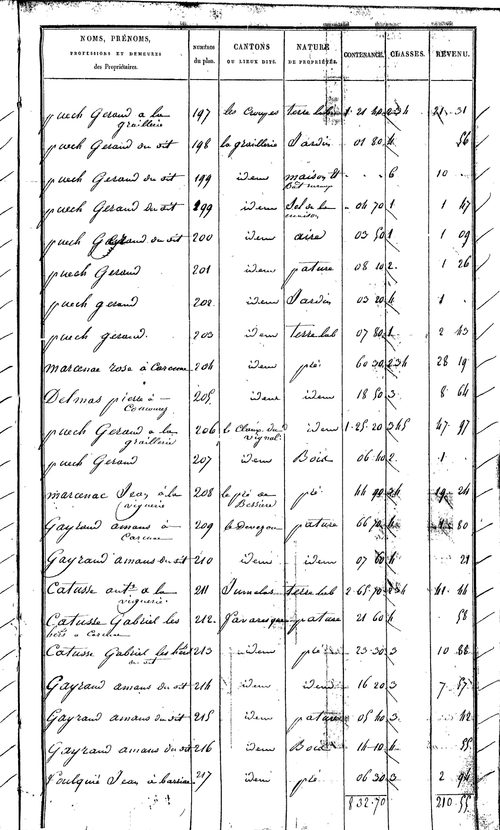 NOMS, PRÉNOMS, PROFESSIONS ET DEMEURES des Propriétaires. NUMÉROS du plan. CANTONS OU LIEUX DITS. NATURE DE PROPRIÉTÉS. CONTENANCE. CLASSES. REVENU.
puech Geraud a la graillerie 197 les Crouzes terre lab 1 21 40 234 21 31
puech Geraud du dit 198 la graillerie Jardin 01 80 4 56
puech Geraud du dit 199 idem maison et 6 10
puech Geraud du dit 299 idem Sol de la maison 04 70 1 1 47
puech Geraud du dit 200 idem aire 03 50 1 1 09
puech Geraud 201 idem pature 08 10 2 1 26
puech geraud 202 idem Jardin 03 20 4 1
puech geraud 203 idem terre lab 07 80 1 2 43
marcenac rose à 204 idem pré 60 30 234 28 19
Delmas pierre à 205 idem idem 18 50 3 8 64
puech Geraud a la graillerie 206 le Champ du Vignal idem 1 25 20 345 47 97
puech Geraud 207 idem Bois 06 40 2 1
marcenac Jean à la viguerie 208 le pré de Bessiere pré 44 90 34 19 24
Gayraud amans à 209 le pature 66 70 4 80
Gayraud amans du dit 210 idem idem 07 60 4 21
Catusse ant. a la viguerie 211 Jumelas terre lab 2 65 70 234 41 44
Catusse Gabriel les hers a 212 pature 21 60 4 58
Catusse Gabriel les hers du dit 213 idem pré 23 30 3 10 88
Gayraud amans du dit 214 idem idem 16 20 3 7 57
Gayraud amans du dit 215 idem pature 05 40 3 42
Gayraud amans du dit 216 idem Bois 14 10 4 55
Foulquié Jean à 217 idem pré 06 30 3 2 94
832 70 210 55